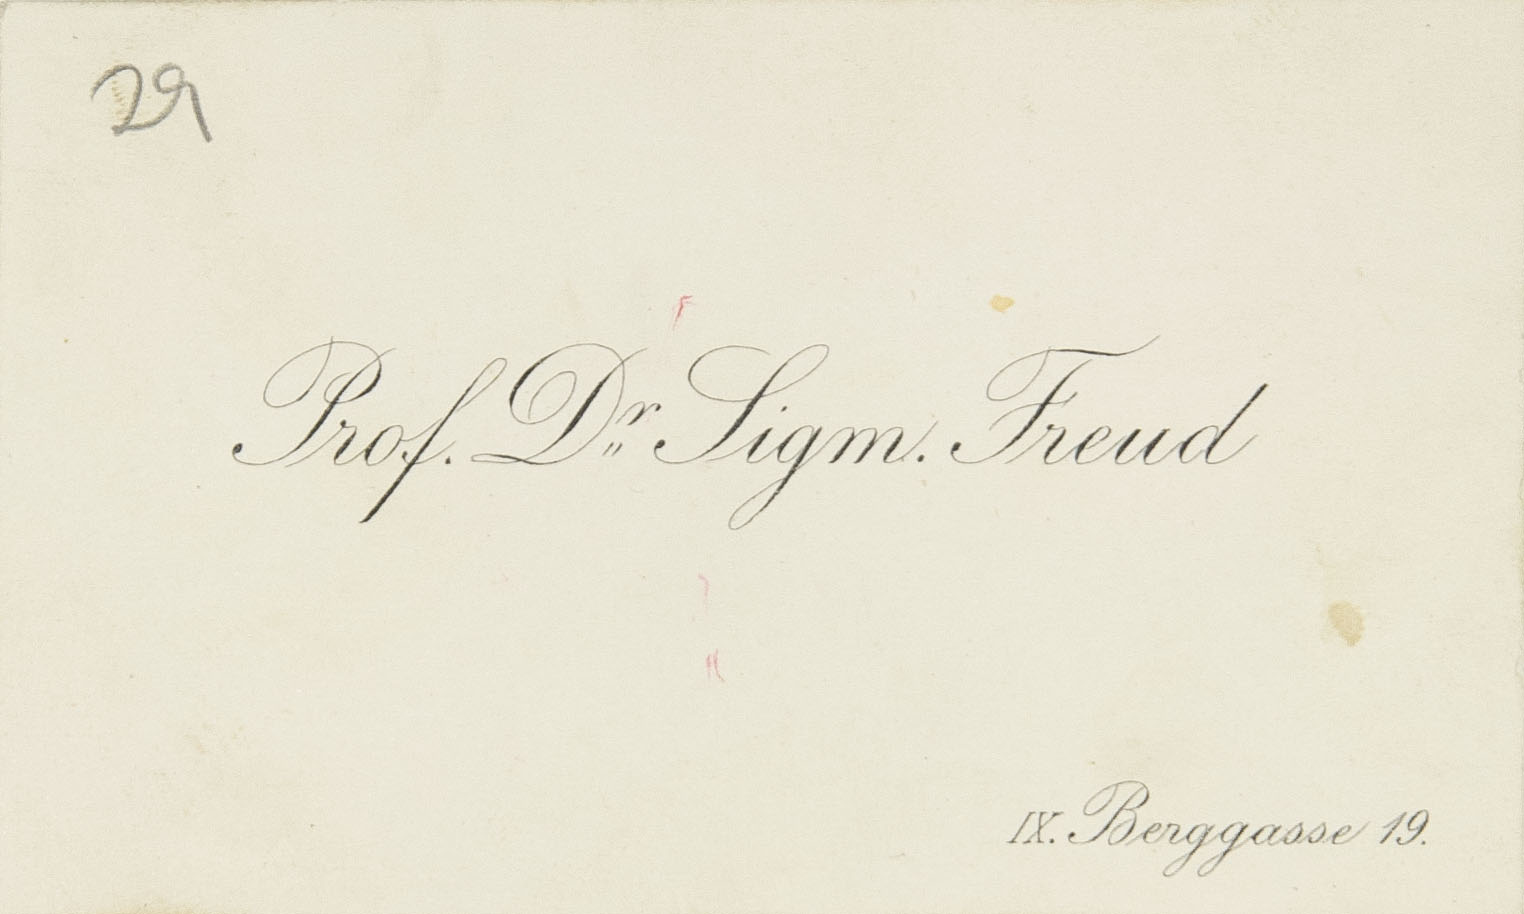 29
Prof. Dr. Sigm. Freud
IX. Berggasse 19.